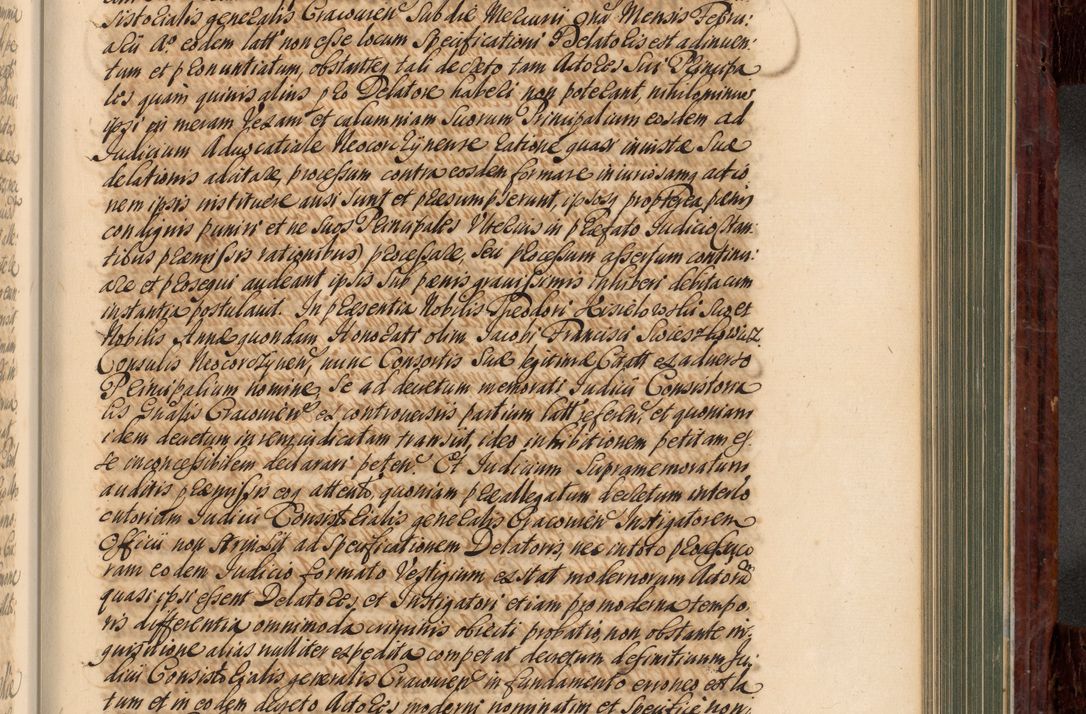 sistorialis generalis Cracovien Sub die Mercurij 9na Mensis Febru
arii Ao eodem latt non esse locum Specificationi Delatoris est adinven:
tum et pronuntiatum, obstanteq tali decreto tam Actores Sui Principa
les quam quivis alius pro Delatore haberi non poterant, nihilominus
ipsi in meram Vexam et calumniam Suorum Principalium eosdem ad
Judicium Advocatiale Neocorczynense ratione quasi iniustæ Suæ
delationis adcitare, processum contra eosdem formare iniuriosamq actio
nem ipsis instituere ausi sunt et præsumpserunt, ipsosq propterea pœnis
condignis puniri et ne Suos Principales Ulterius in præfato Judicio stan
tibus præmissis rationibus) processare, Seu processum assertum continu:
are et prosequi audeant ipsis Sub pœnis gravissimis inhiberi debita cum
instantia postularunt. In præsentia Nobilis Theodori Suo et
Nobilis Annæ quondam Honorati olim Jacobi Francisci
Consulis Neocorczynen, nunc Consortis Suæ legitimæ Citatt ex adverso
Principalium nomine, Se ad decretum memorati Judicii Consistoria
lis Gnalis Cracovien ex controversiis partium latt referen, et quoniam
idem decretum in rem iudicatam transiit, ideo inhibitionem petitam es
se inconcessibilem declarari peten. Et Judicium Supramemoratum
auditis præmissis eoq attento, quoniam præallegatum decretum interlo
cutorium Judicii Consistorialis generalis Cracovien Instigatorem
Officii non strinxit ad specificationem Delatoris, nec in toto processu co
ram eodem Judicio formato Vestigium exstat modernorum Actorum
quasi ipsi essent Delatores, et Instigatori etiam pro moderna tempo
ris differentia omnimoda criminis obiecti probatio, non obstante in:
quisitione alias nulliter expedita competat decretum definitivum Ju:
dicii Consistorialis generalis Cracovien in fundamento erroneo est la
tum et in eodem decreto Actores moderni nominatim et Specifice non: